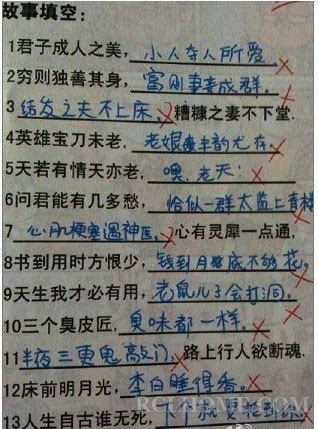 故事填空:
1君子成人之美,小人夺人所爱.
2穷则独善其身,富则妻妾成群.
3结发之夫不上床,糟糠之妻不下堂.
4英雄宝刀未老,老娘丰韵尤存.
5天若有情天亦老,噢,老天!
6问君能有几多愁,恰似一群太监上青楼
7心肌梗塞遇神医,心有灵犀一点通,
8书到用时方恨少,钱到月底不够花.
9天生我才必有用,老鼠儿子会打洞.
10三个臭皮匠,臭味都一样.
11半夜三更鬼敲门,路上行人欲断魂.
12床前明月光,李白睡得香.
13人生自古谁无死,下个就